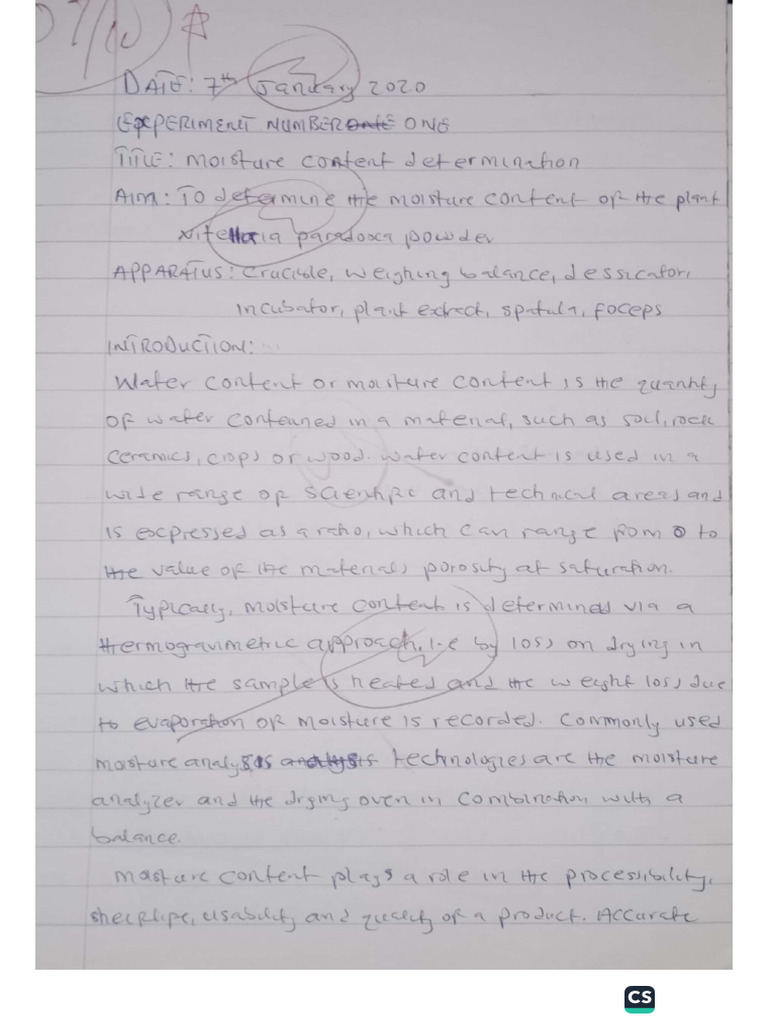 DATE: 7th January 2020
EXPERIMENT NUMBER ONE
TITLE: Moisture content determination
AIM: TO determine the moisture content of the plant
vitellaria paradoxa powder
APPARATUS: Crucible, weighing balance, dessicator,
incubator, plant extract, spatula, foceps
INTRODUCTION:
Water content or moisture content is the quantity
of water contained in a material, such as soil, rock
ceramics, crops or wood. water content is used in a
wide range of scientific and technical areas and
is expressed as a ratio, which can range from 0 to
the value of the materials porosity at saturation.
Typically, moisture content is determined via a
thermogravimetric approach, i.e by loss on drying in
which the sample is heated and the weight loss due
to evaporation of moisture is recorded. Commonly used
moisture analysis technologies are the moisture
analyzer and the drying oven in combination with a
balance.
Moisture content plays a role in the processibility,
shelflife, usability and quality of a product. Accurate
CS